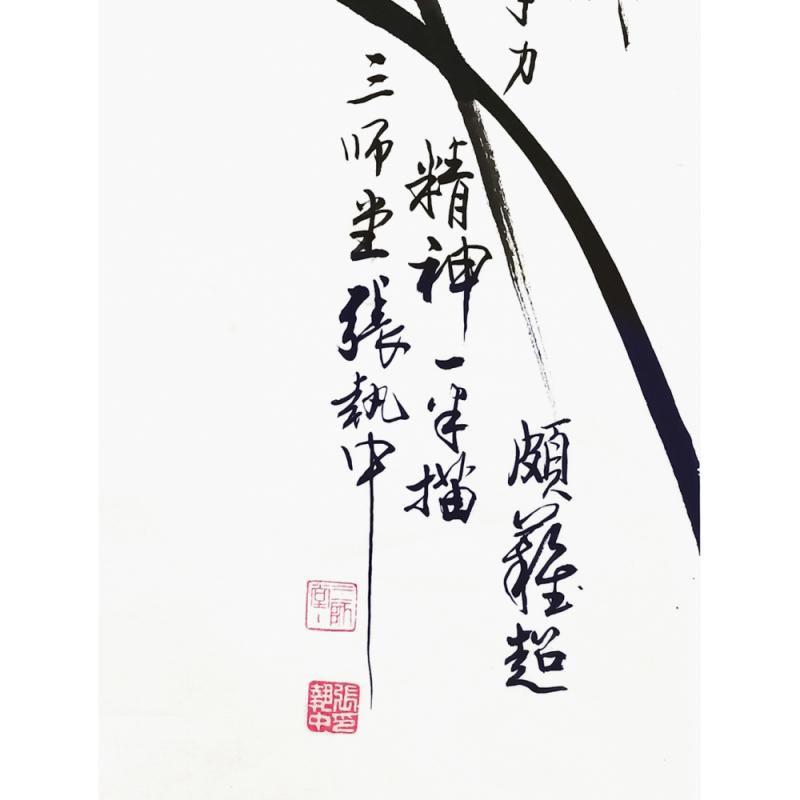 力
頗難超
精神一半描
三师堂張執中
三師堂
張印執中